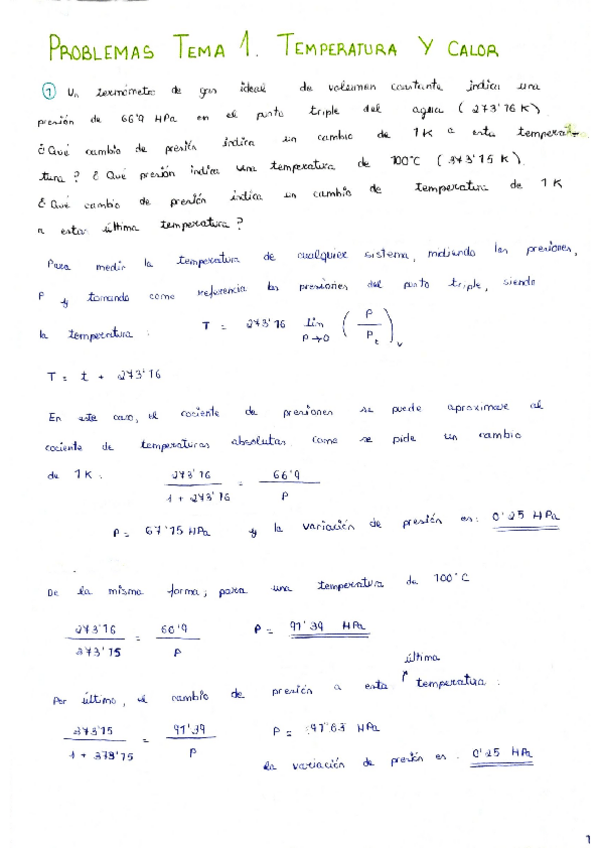 PROBLEMAS TEMA 1. TEMPERATURA Y CALOR
① Un termómetro de gas ideal de volumen constante indica una
presión de 66'9 HPa en el punto triple del agua (273'16 K).
¿Qué cambio de presión indica un cambio de 1K a esta tempera-
tura? ¿Qué presión indica una temperatura de 100°C (373'15 K).
¿Qué cambio de presión indica un cambio de temperatura de 1 K
a esta última temperatura?
Para medir la temperatura de cualquier sistema, midiendo las presiones,
P y tomando como referencia las presiones del punto triple, siendo
la temperatura: T = 273'16 lim P→0 (P / Pt)v
T = t + 273'16
En este caso, el cociente de presiones se puede aproximar al
cociente de temperaturas absolutas como se pide un cambio
de 1K: 273'16 / 1 + 273'16 = 66'9 / P
P = 67'15 HPa y la variación de presión es: 0'25 HPa
De la misma forma; para una temperatura de 100°C
273'16 / 373'15 = 66'9 / P P = 91'39 HPa
última
Por último, el cambio de presión a esta temperatura:
373'15 / 1 + 373'15 = 91'39 / P P = 91'63 HPa
la variación de presión es: 0'25 HPa
1